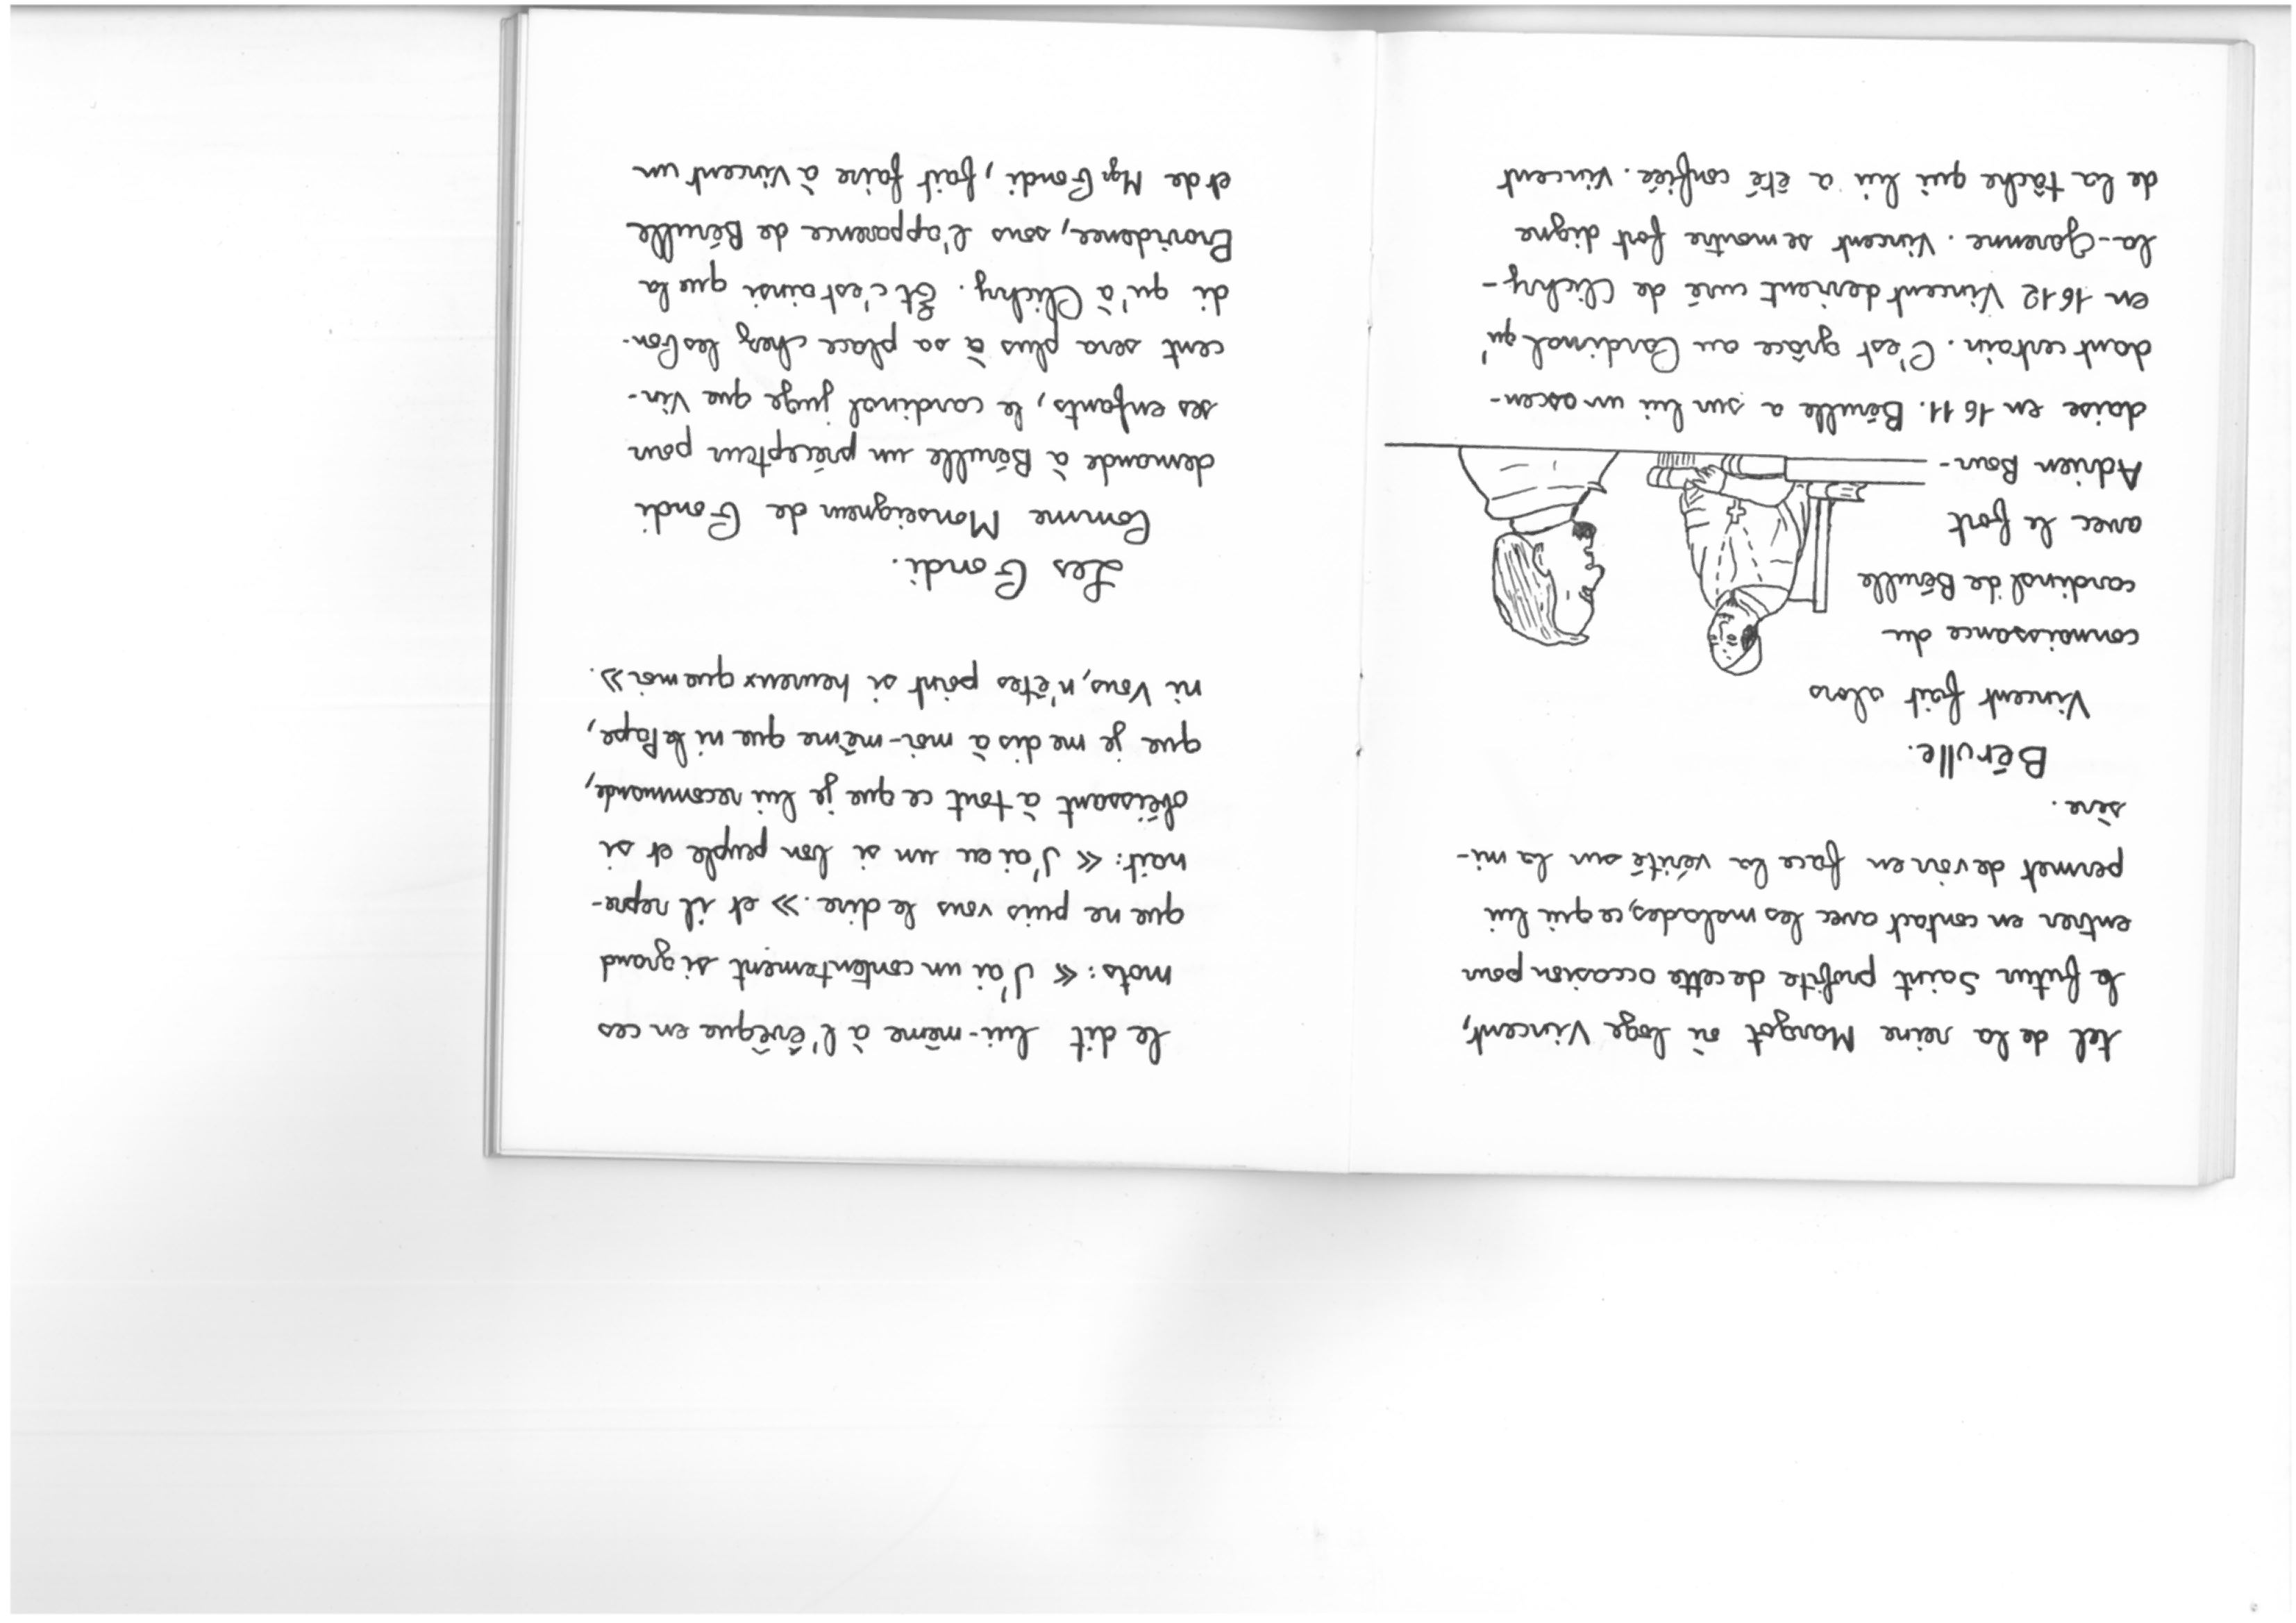 tel de la reine Margot où loge Vincent,
le futur Saint profite de cette occasion pour
entrer en contact avec les malades, ce qui lui
permet de voir en face la vérité sur la mi-
sère.
Bérulle.
Vincent fait alors
connaissance du
cardinal de Bérulle
avec le fort
Adrien Bour-
doise en 1611. Bérulle a sur lui un ascen-
dant certain. C'est grâce au Cardinal qu'
en 1612 Vincent devient curé de Clichy-
la-Garenne. Vincent se montre fort digne
de la tâche qui lui a été confiée. Vincent
le dit lui-même à l'évêque en ces
mots: « J'ai un contentement si grand
que ne puis vous le dire. » et il repre-
nait: « J'ai eu un si bon peuple et si
obéissant à tout ce que je lui recommande,
que je me dis à moi-même que ni le Pape,
ni Vous, n'êtes point si heureux que moi ».
Les Gondi.
Comme Monseigneur de Gondi
demande à Bérulle un précepteur pour
ses enfants, le cardinal juge que Vin-
cent sera plus à sa place chez les Gon-
di qu'à Clichy. Et c'est ainsi que la
Providence, sous l'apparence de Bérulle
et de Mgr Gondi, fait faire à Vincent un